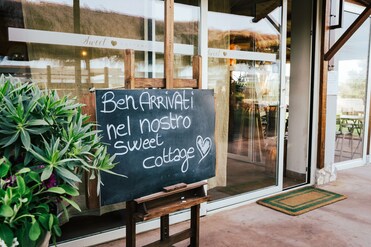 Sweet
Ben ARRIVATI
nel nostro
sweet
cottage